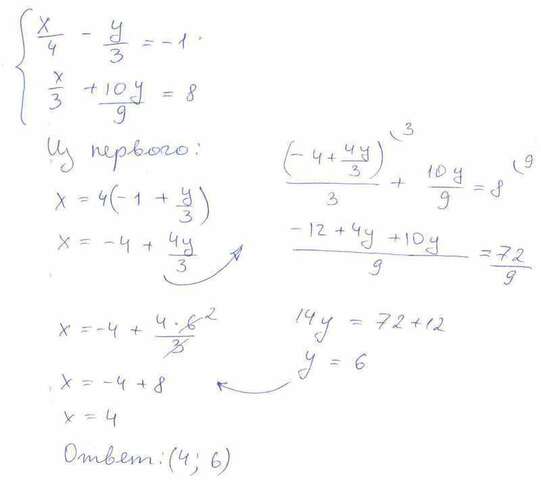 x/4 - y/3 = -1
x/3 + 10y/9 = 8
Из первого:
x = 4(-1 + y/3)
x = -4 + 4y/3
(-4 + 4y/3)^(3 / 3 + 10y/9 = 8^(9
(-12 + 4y + 10y)/9 = 72/9
14y = 72+12
y = 6
x = -4 + 4·6²/3
x = -4 + 8
x = 4
Ответ: (4; 6)